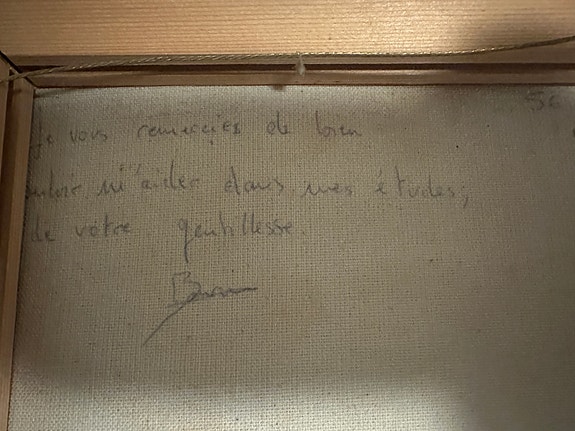 Je vous remercies de bien
vouloir m'aider dans mes études,
de votre gentillesse.